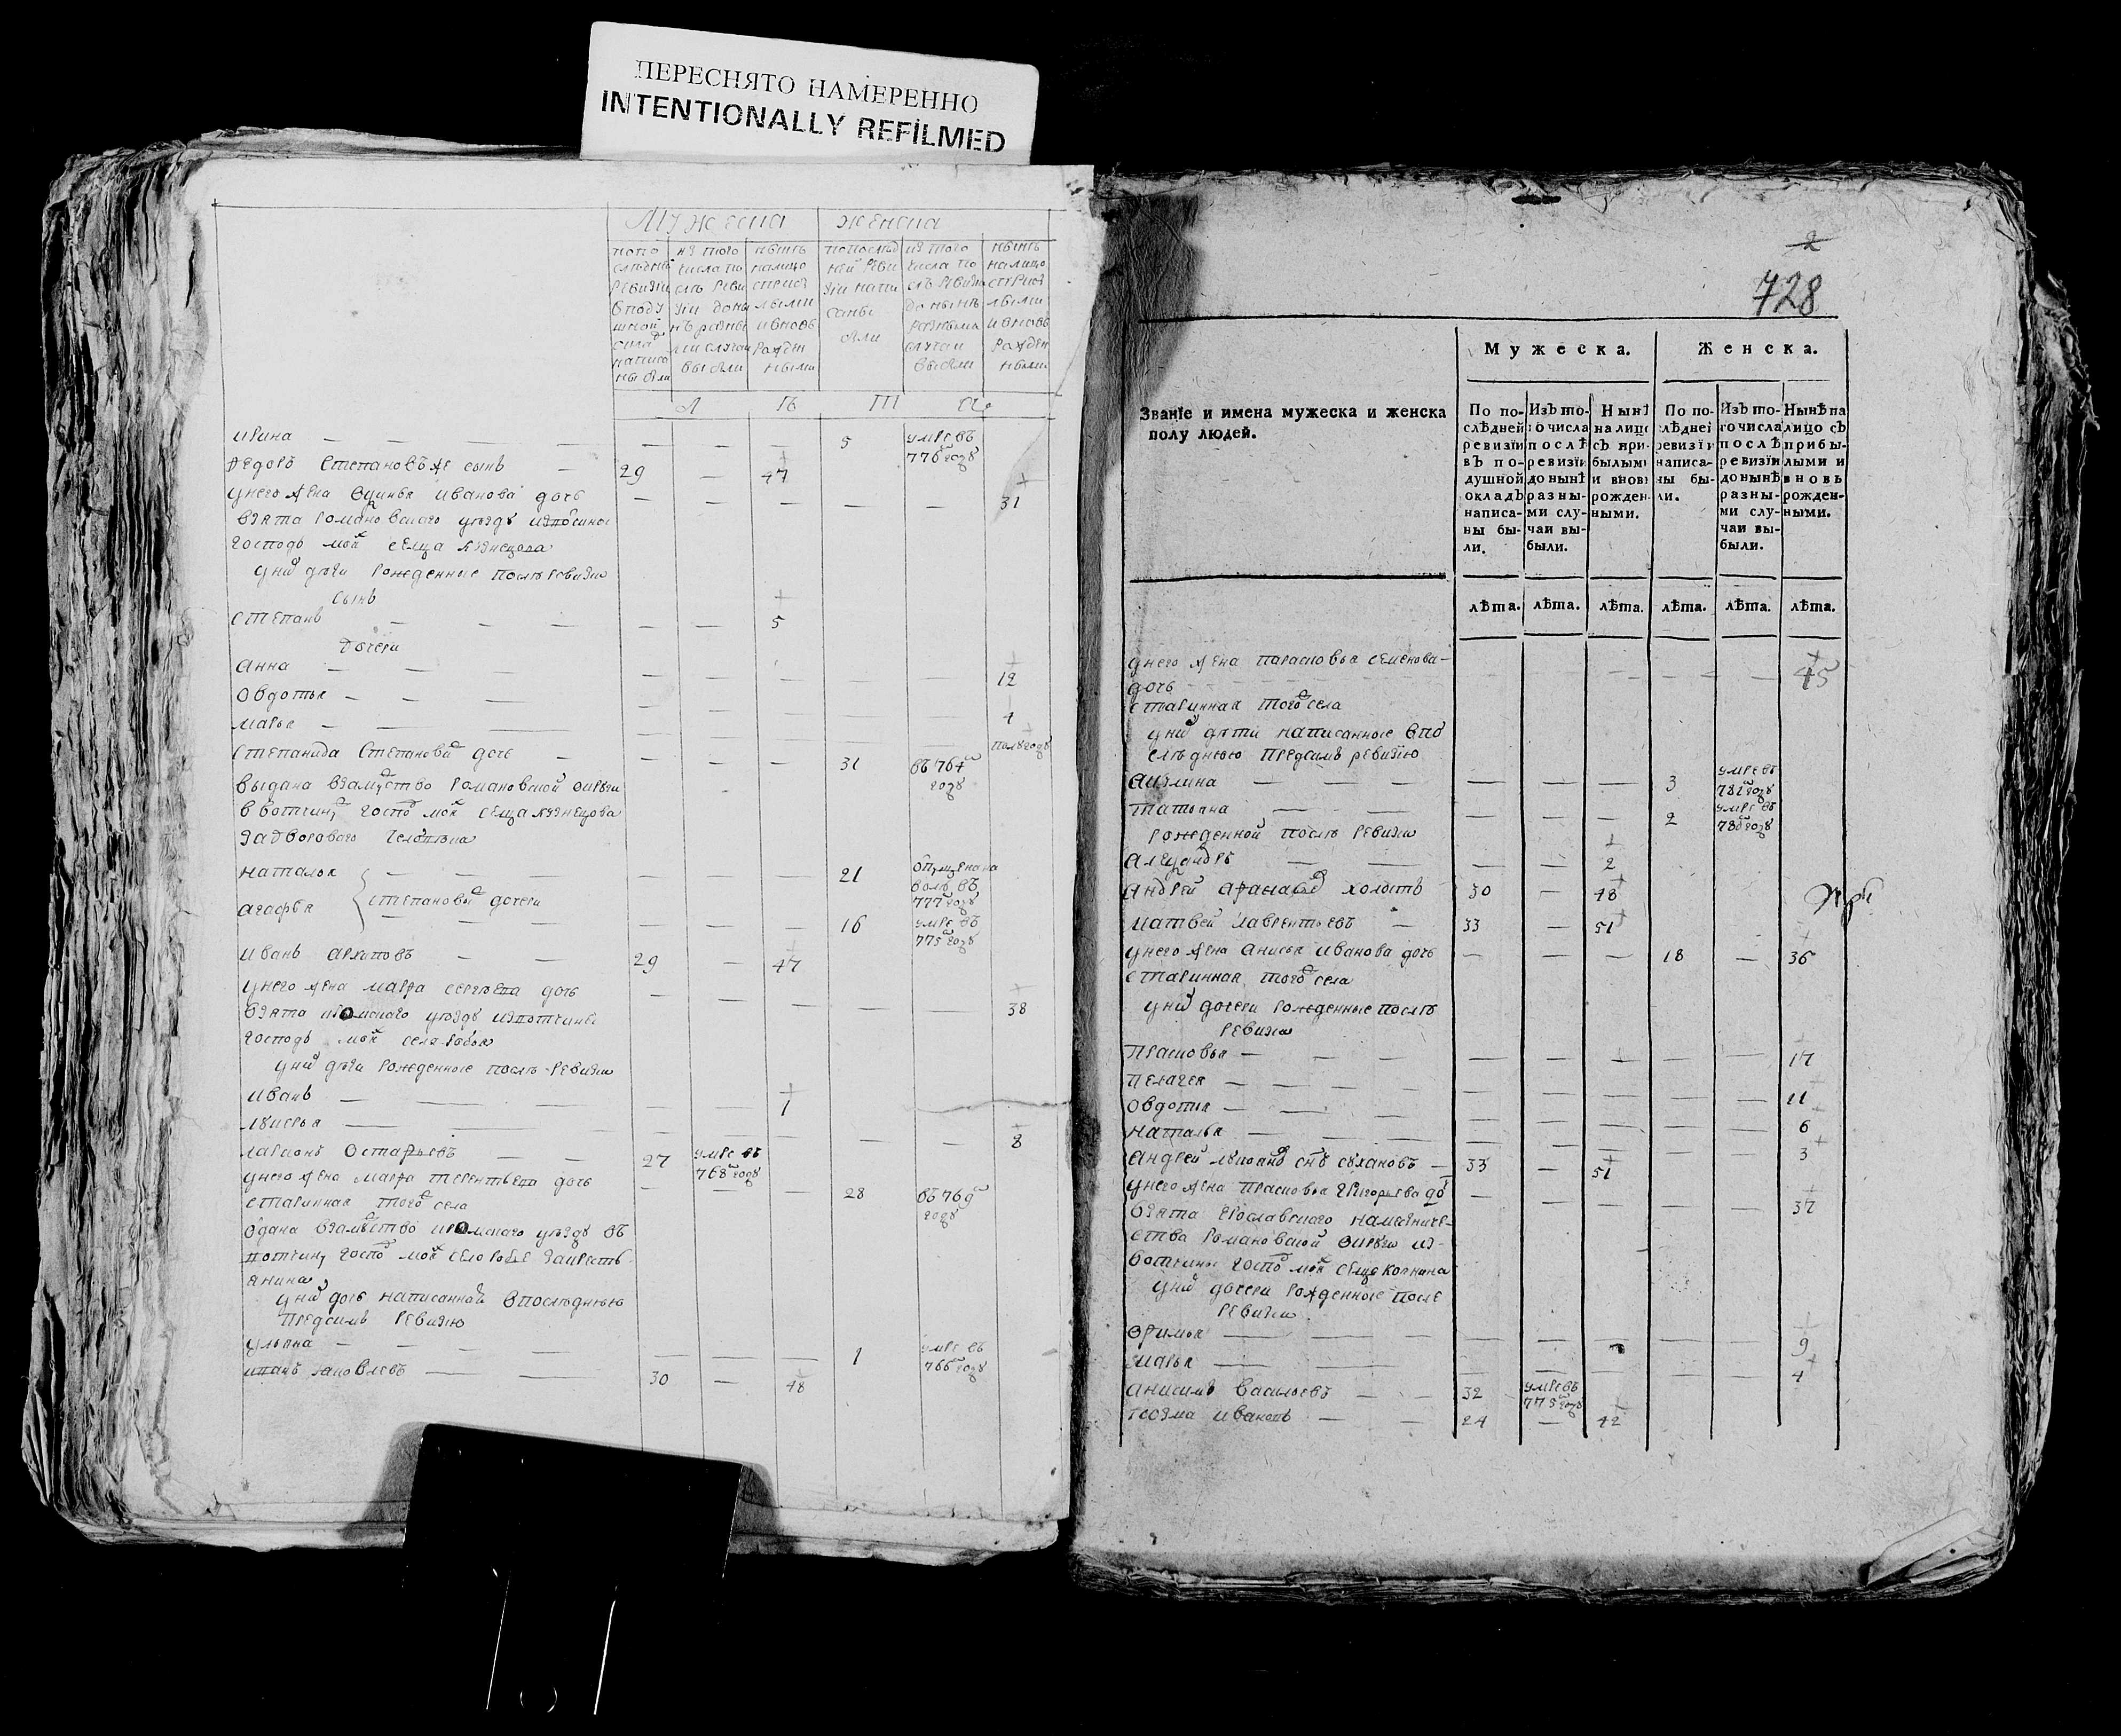 ПЕРЕСНЯТО НАМЕРЕННО
INTENTIONALLY REFILMED
Мужеска женска
попо
следней
ревизии
вподу
шной
оклад
написа
ны были
из того
числа по
сле реви
зии доны
не разны
ми случаи
выбыли
ныне
налицо
сприбы
лыми
ивновь
рожден
ными
попослед
ней реви
зии напи
саны
были
из того
числа по
сле ревизи
до ныне
разными
случаи
выбыли
ныне
налицо
сприбы
лыми
ивновь
рожден
ными
ирина — — — — — — — 5 умре въ 776м году
федоръ степановъ же сынъ — 29 — 47
унего жена Иванова дочь — — — — — 31
взята романовского уезду
господ мой селца
уних дети рожденные после ревизи
сынъ
степанъ — — — — — 5
дочери
анна — — — — — — — — 12
овдотья — — — — — — — 4
марья — — — — — — — полугоду
степанида степанова дочь — — — — 31 въ 764м году
выдана взамужство романовской округи
в вотчину госпо мой селца кузнецова
задворового человека
наталья — — — — — — 21 отпущена на волю въ 777м году
степановы дочери
агафья — — — — — — 16 умре въ 775м году
иванъ архиповъ — — 29 — 47
унего жена марфа сергеева дочь — — — — — 38
взята уезду извотчины
господ мой села
уних дети рожденные после ревизи
иванъ — — — — — 1
— — — — — — — — 8
ларионъ остафьевъ — — 27 умре въ 768м году
унего жена марфа терентьева дочь — — — 28 въ 769м году
старинная того села
отдана взамужство уезду въ
вотчину госпо мой село закресть
янина
уних дочь написанная впоследнюю
предсимъ ревизию
ульяна — — — — — — — 1 умре въ 766м году
яковлевъ — — 30 — 48
2
728
Званїе и имена мужеска и женска
полу людей.
Мужеска.
Женска.
По по-
слѣдней
ревизїи
въ по-
душной
окладъ
написа-
ны бы-
ли.
Изъ то-
го числа
послѣ
ревизїи
до нынѣ
разны-
ми слу-
чаи вы-
были.
Нынѣ
на лицо
съ при-
былыми
и вновь
рожден-
ными.
По по-
слѣдней
ревизїи
написа-
ны бы-
ли.
Изъ то-
го числа
послѣ
ревизїи
до нынѣ
разны-
ми слу-
чаи вы-
были.
Нынѣ на
лицо съ
прибы-
лыми и
вновь
рожден-
ными.
лѣта. лѣта. лѣта. лѣта. лѣта. лѣта.
унего жена парасковья семенова —
дочь — — — — — 45
старинная того села
уних дети написанные впо
следнюю предсимъ ревизїю
акилина — — — — — 3 умре въ 781м году
татьяна — — — — — 2 умре въ году
рожденной после ревизи
— — — — 2
андрей холостъ 30 — 48
матвей лаврентьевъ — 33 — 51
унего жена анисья иванова дочь — — — 18 — 36
старинная того села
уних дочери рожденные после
ревизи
прасковья — — — — — — — — — 17
пелагея — — — — — — — — — 11
овдотья — — — — — — — — — 6
наталья — — — — — — — — — 3
андрей снъ сухановъ — 33 — 51
унего жена прасковья григорьева до — — — — — 37
взята ерославского намесниче-
ства романовской округи из-
вотчины госпо мой
уних дочери рожденные после
ревизи
офимья — — — — — — — — 9
марья — — — — — — — 4
анисимъ васильевъ — — 32 умре въ 775м году
козма ивановъ — — 24 — 42